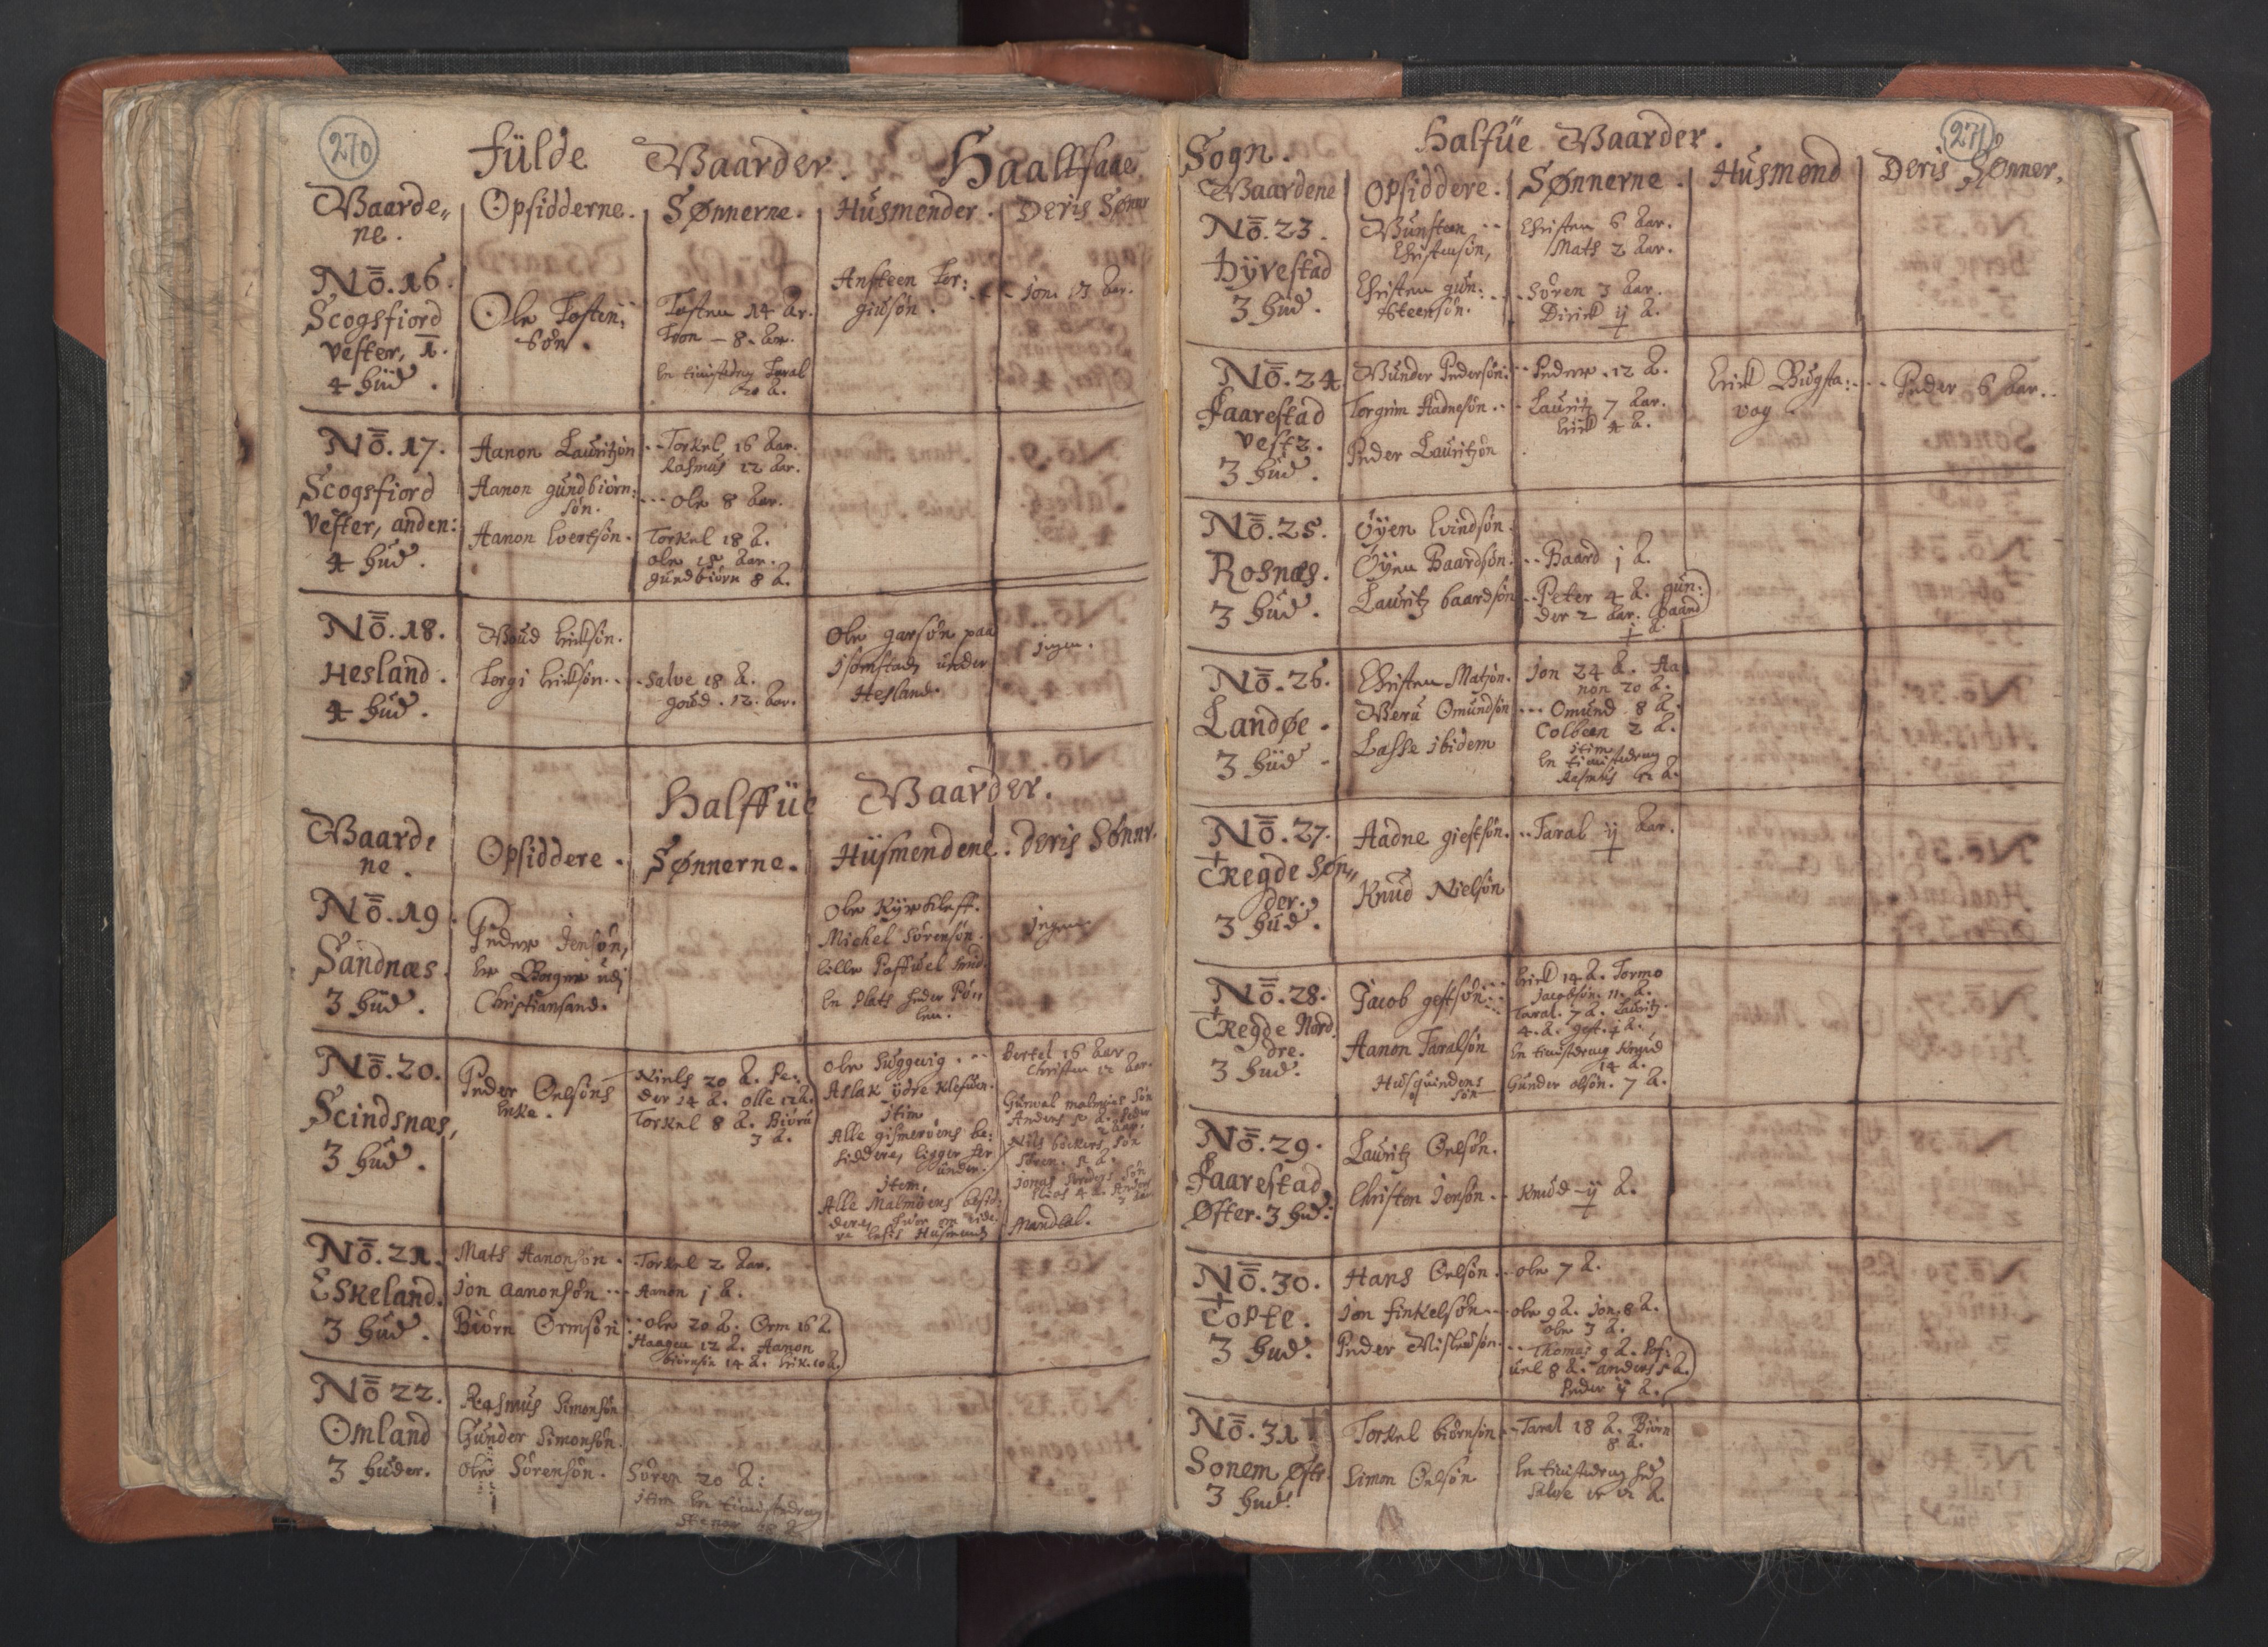 270
fülde Gaarder. Haaltfaae
Gaarde,, Opsidderne. Sønnerne. Husmender. Deris Sønner
ne.
No. 16.
Scogsfiord
Vester, 1.
4 hud.
Ole Tostin:
Søn.
Tosten 14 Aar.
8. Aar.
En tienistedreng Taral
20 A.
Ansteen Tor:
giusøn.
Jon. 13 Aar.
No. 17.
Scogsfiord
Vester, anden:
4 hud.
Aanon Lauritsøn
Aanon gundbiørn:
søn.
Aanon Evertsøn.
Torkel, 16 Aar.
Rasmus 12 Aar.
Ole 8 Aar.
Torkel 18 A.
Ole 15 Aar.
Gundbiørn 8 A.
No. 18.
Hesland.
4 hud.
Goud Erichsøn.
Tergi Erichsøn.
Salve 18 A.
goud. 12. Aar.
Ole garsøn paa
Jsomstad, under
Hesland.
jngen.
Halffüe Gaarder.
Gaarde
ne.
Opsiddere. Sønnerne. Husmendene. Deris Sønner.
No. 19.
Sandnæs.
3 hud.
Peder Jensøn,
En Borger udj
Christiansand.
Ole Kyrekleff.
Michel Sørensøn
lille Poffuel Smid.
En Plats heder Røn
len.
jngen
No. 20.
Scindsnæs,
3 hud.
Peder Oelsøns
Enke.
Niels 20 A. Pe:
der 14 A. Olle 12 A.
Torkel 8 A. Biørn
3 A.
Ole Suggevig.
Aslak ydre Klefuen.
jtem
Alle gismerøens be:
siddere, ligger her
under.
jtem,
Alle Malmøens besid:
dere,
Husmend
Bertel 16 Aar
Christen 12 Aar.
Søren. 12 A.
Mandal.
No. 21.
Eskeland.
3 hud.
Mats Aanonsøn.
Jon Aanonsøn
Biørn Ormsøn
Torkel 2 Aar.
Aanon j A.
Ole 20 A. Orm 16 A.
Haagen 12 A. Aanon
Biørnsøn 14 A. Erik. 10 A.
No 22.
Omland
3 huder.
Rasmus Simonsøn
Gunder Simonsøn.
Ole Sørensøn.
Søren 20 A:
jtem En tienistedreng
Stener 18 A.
271
Sogn. Halfüe Gaarder.
Gaardene Opsiddere. Sønnerne. Husmend Deris Sønner.
No. 23.
Dyvestad
3 hud.
Gunsteen
Christensøn,
Christen gun:
steensøn.
Christen 6 Aar.
Mats 2 Aar.
Søren 3 Aar.
Dirick ij A.
No. 24
Jaarestad
Vestr.
3 hud.
Gunder Pedersøn:
Torgrim Aadnesøn
Peder Lauritsøn
Peder. 12 A.
Lauritz 7 Aar.
Erick 4 A.
Erick Bugsta:
vog.
Peder 6 Aar.
No. 25.
Rosnæs.
3 hud.
Öyen Evindsøn.
Öyen Baardsøn.
Lauritz baardsøn
Baard j A.
Peter 4 A. Gun:
der 2 Aar. Baard
j A.
No. 26.
Landøe.
3 hud
Christen Matsøn.
Beru Omundsøn
Lasse ibidem
Jon 24 A. Aa
non 20 A.
Omund 8 A.
Colbeen 2 A.
jtem
En tienistedreng
Rasmus 12 A.
No. 27.
Tregde Søn,,
der.
3 hud.
Aadne giestsøn.
Knud Nielsøn
Taral ij Aar.
No. 28.
Tregde Nord
dre.
3 hud.
Jacob gestsøn
Aanon Taralsøn
Husquindens
søn
Erick 14 A. Tormo
Jacobsøn. 11. A.
Taral. 7 A. Lauritz.
4. A. gest. j A.
En tienistdreng Knud
14 A.
Gunder olsøn. 7 A.
No. 29.
Jaarestad
Øster. 3 hud:
Lauritz Oelsøn.
Christen Jensøn.
Knud ij A.
No. 30.
Topte.
3 hud.
Hans Oelsøn.
Jon finkelsøn
Peder
Ole 7 A.
Ole 9 A. Jon 8 A.
Ole 3 A.
Thomas 9 A. Pof:
uel 8 A. anders 5 A.
Peder ij A.
No. 31
Sonem Øst:
3 hud.
Torkel biørnsøn
Simon Oelsøn
Taral 18 A. Biørn
8 A.
En tienistedreng hed
Salve